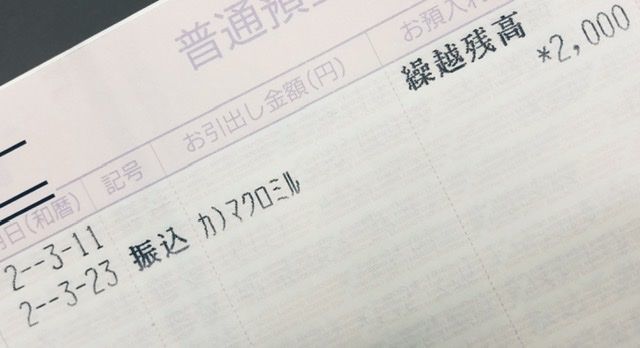 普通預金
月日(和暦) 記号 お引出し金額(円) お預入れ
2--3-11 繰越残高 *2,000
2--3-23 振込 カ)マクロミル